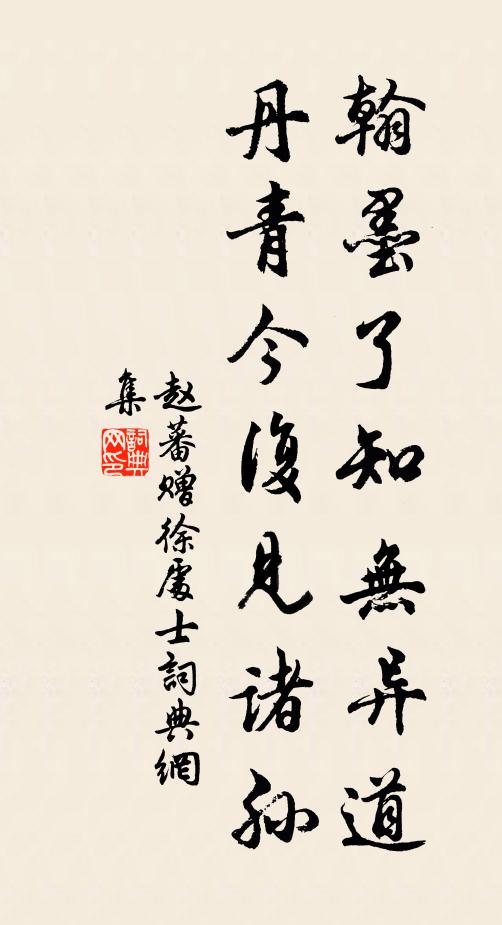 翰墨了知無异道
丹青今復見诸孙
赵蕃赠徐處士詞典網
集
詞典
网印